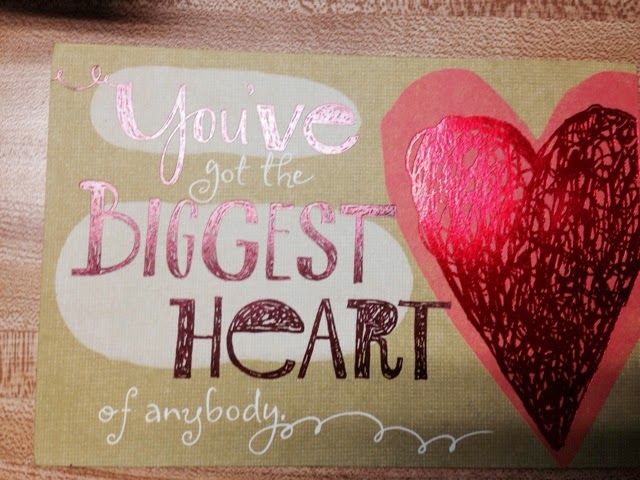 You've
got the
BIGGEST
HeART
of anybody.